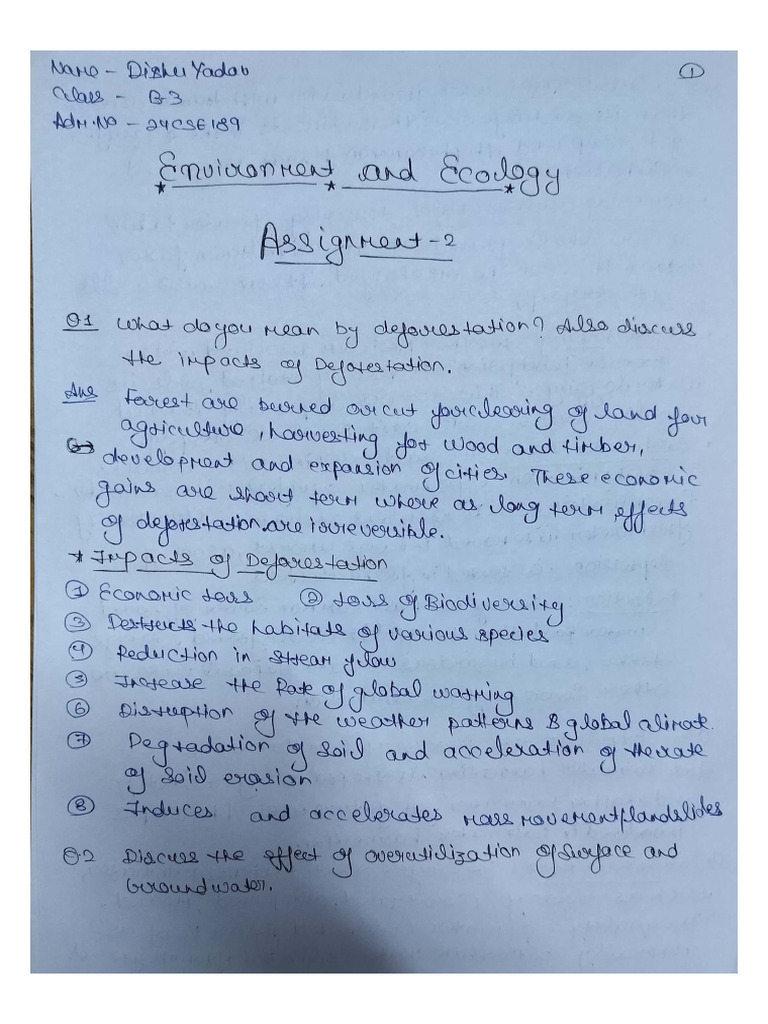 Name - Dishu Yadav
①
Class - B3
Adm.No - 24CSE189
Environment and Ecology
Assignment - 2
Q1 What do you mean by deforestation? Also discuss
the impacts of Deforestation.
Ans Forest are burned or cut for clearing of land for
agriculture, harvesting for wood and timber,
development and expansion of cities. These economic
gains are short term where as long term effects
of deforestation are irreversible.
* Impacts of Deforestation
① Economic loss ② Loss of Biodiversity
③ Destructs the habitats of various species
④ Reduction in stream flow
⑤ Increase the Rate of global warming
⑥ Disruption of the weather patterns & global climate
⑦ Degradation of soil and acceleration of the rate
of soil erosion
⑧ Induces and accelerates mass movement/landslides
Q.2 Discuss the effect of overutilization of surface and
Groundwater.